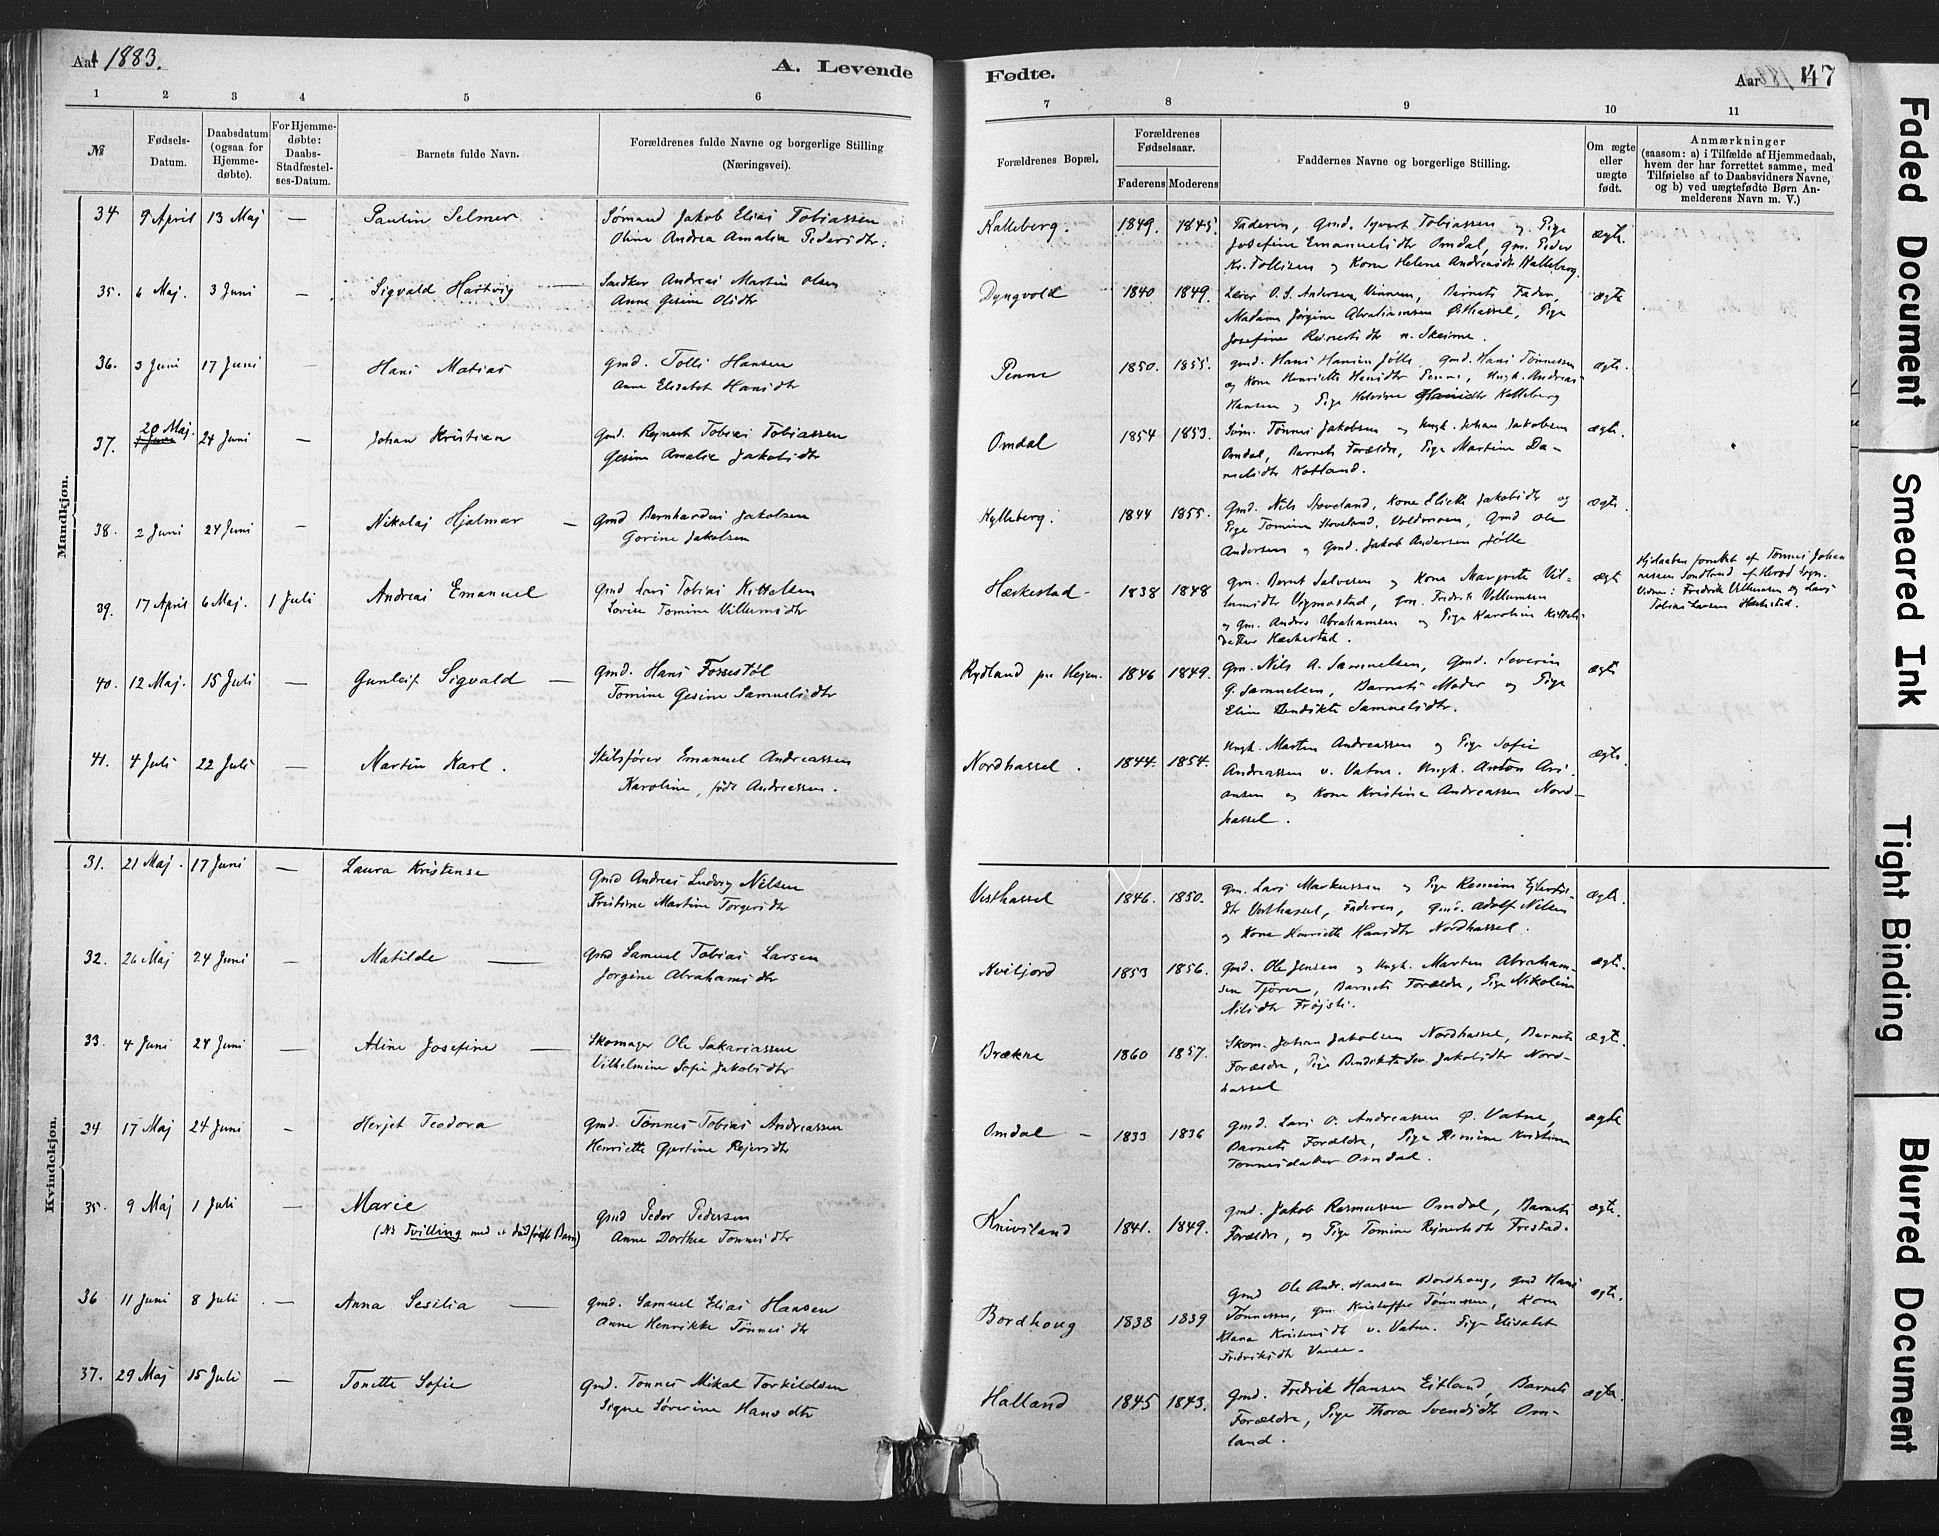 Aar 1883.
A. Levende
Fødte.
Aar
147
1 2 3 4 5 6 7 8 9 10 11
№
Fødsels-
Datum.
Daabsdatum
(ogsaa for
Hjemme-
døbte).
For Hjemme-
døbte:
Daabs-
Stadfæstel-
ses-Datum.
Barnets fulde Navn.
Forældrenes fulde Navne og borgerlige Stilling
(Næringsvei).
Forældrenes Bopæl.
Forældrenes
Fødselsaar.
Faderens Moderens
Faddernes Navne og borgerlige Stilling.
Om ægte
eller
uægte
født.
Anmærkninger
(saasom: a) i Tilfælde af Hjemmedaab,
hvem der har forrettet samme, med
Tilføielse af to Daabsvidners Navne,
og b) ved uægtefødte Børn An-
melderens Navn m. V.)
Mandkjøn.
34 9 April 13 Maj — Paulin Selmer
Sømand Jakob Elias Tobiassen
Oline Andrea Amalia Pedersdtr.
Kalleberg. 1849. 1845.
Faderen, Gmd. Syvert Tobiassen og Pige
Josefine Emanuelsdtr Omdal, gm. Peder
Kr. Tollisen og Kone Helene Andreasdtr Kalleberg.
ægte.
35. 6 Maj. 3 Juni — Sigvald Hartvig —
Snedker Andreas Martin Olsen
Anne Gesine Olsdtr
Dyngvold 1840 1849.
Lærer O. S. Andersen Vannem, Barnets Fader,
Madam Jørgine Abrahamsen Østhassel, Pige
Josefine Reinertsdtr n. Skeime.
ægte
36. 3 Juni 17 Juni — Hans Matias
gmd. Tolli Hansen
Anne Elisabet Hansdtr
Penne 1850. 1855.
gmd. Hans Hansen Jølle, gmd. Hans Tønnessen
og Kone Henriette Hansdtr Penne, Ungk. Andreas
Hansen og Pige Helene Hansdtr Kalleberg
ægte.
37. 20 Maj. 24 Juni — Johan Kristian
Gmd. Rejnert Tobias Tobiassen
Gesine Amalie Jakobsdtr
Omdal 1854 1853.
Søm. Tønnes Jakobsen og Ungk. Johan Jakobsen
Omdal, Barnets Forældre, Pige Martine Da-
nielsdtr Kotland.
ægte.
38. 2 Juni 24 Juni — Nikolaj Hjalmar —
Gmd Bernhardus Jakobsen
Gorine Jakobsen
Kylleberg. 1844 1855.
Gmd. Nils Stoveland, Kone Elisett Jakobsdtr og
Pige Tomine Stoveland, Voldmoen, Gmd Ole
Andersen og Gmd. Jakob Andersen Jølle
ægte.
39. 17 April 6 Maj. 1 Juli Andreas Emanuel
Gmd Lars Tobias Kittelsen
Lovise Tomine Villumsdtr
Hærkestad — 1838 1848
gm. Bernt Salvesen og Kone Margrete Vil-
lumsdtr Vigmostad, gm. Fredrik Vellumsen
og gm. Anders Abrahamsen og Pige Karoline Kittels-
datter Hærkestad.
ægte
Hjdaaben forrettet af Tønnes Johan-
nessen Sondland af Herad Sogn.
Vidner: Fredrik Villumsen og Lars
Tobias Larsen Hærkestad.
40. 12 Maj. 15 Juli — Gunleif Sigvald —
gmd. Hans Fossestøl
Tomine Gesine Samuelsdtr
Rydland pr Hejen. 1846 1849.
gm. Nils A. Samuelsen, Gmd. Severin
G. Samuelsen, Barnets Moder og Pige
Elin Bendikte Samuelsdtr.
ægte
41. 4 Juli 22 Juli — Martin Karl.
Skibsfører Emanuel Andreassen
Karoline, født Andreassen.
Nordhassel. 1844. 1854.
Ungk. Martin Andreassen og Pige Sofie
Andreassen v. Vatne. Ungk. Anton Ari-
ansen og Kone Kristine Andreassen Nord-
hassel.
ægte.
Kvindekjøn.
31. 21 Maj. 17 Juni — Laura Kristense
Gmd Andreas Ludvig Nilsen
Kristine Martine Torgersdtr
Vesthassel 1846. 1850.
gm. Lars Markussen og Pige Remine Ejlerts-
dtr Vesthassel, Faderen, Gmd. Adolf Nilsen
og Kone Henriette Hansdtr Nordhassel.
ægte.
32. 26 Maj 24 Juni — Matilde —
Gmd Samuel Tobias Larsen
Jorgine Abrahamsdtr
Kviljord 1853 1856.
gmd. Ole Jensen og Ungk. Marten Abraham-
sen Tjøren, Barnets Forældre, Pige Nikoline
Nilsdtr Frøjsti.
ægte.
33. 4 Juni 24 Juni — Aline Josefine —
Skomager Ole Sakariassen
Vilhelmine Sofie Jakobsdtr
Brækne 1860 1857.
Skom. Johan Jakobsen Nordhassel, Barnets
Forældre, Pige Bendikte Sev. Jakobsdtr Nord-
hassel
ægte.
34 17 Maj 24 Juni — Herjet Teodora
gmd. Tønnes Tobias Andreassen
Henriette Gjertine Rejersdtr
Omdal — 1833 1836
gmd. Lars O. Andreassen Ø. Vatne,
Barnets Forældre, Pige Remine Kristine
Tønnesdatter Omdal.
ægte
35. 9 Maj 1 Juli — Marie
(NB Tvilling med et dødfødt Barn)
gmd Peder Pedersen
Anne Dorthea Tønnesdtr
Knivsland 1841. 1849.
gmd. Jakob Rasmussen Omdal, Barnets
Forældre, og Pige Tomine Rejnertsdtr Frestad.
ægte.
36 11 Juni 8 Juli — Anna Sesilia —
gmd. Samuel Elias Hansen
Anne Henrikke Tønnesdtr
Bordhoug 1838 1839
Gmd Ole Andr. Hansen Bordhoug, gmd Hans
Tønnessen, gm. Kristoffer Tønnessen, Kone
Klara Kristensdtr v. Vatne. Pige Elisabet
Fredriksdtr Vanse.
ægte.
37. 29 Maj 15 Juli — Tonette Sofie
Gmd. Tønnes Mikal Torkildsen
Signe Severine Hansdtr
Halland 1845 1843.
Gmd. Fredrik Hansen Eitland, Barnets
Forældre, Pige Thora Svendsdtr Om-
land.
ægte.
Faded Document
Smeared Ink
Tight Binding
Blurred Document